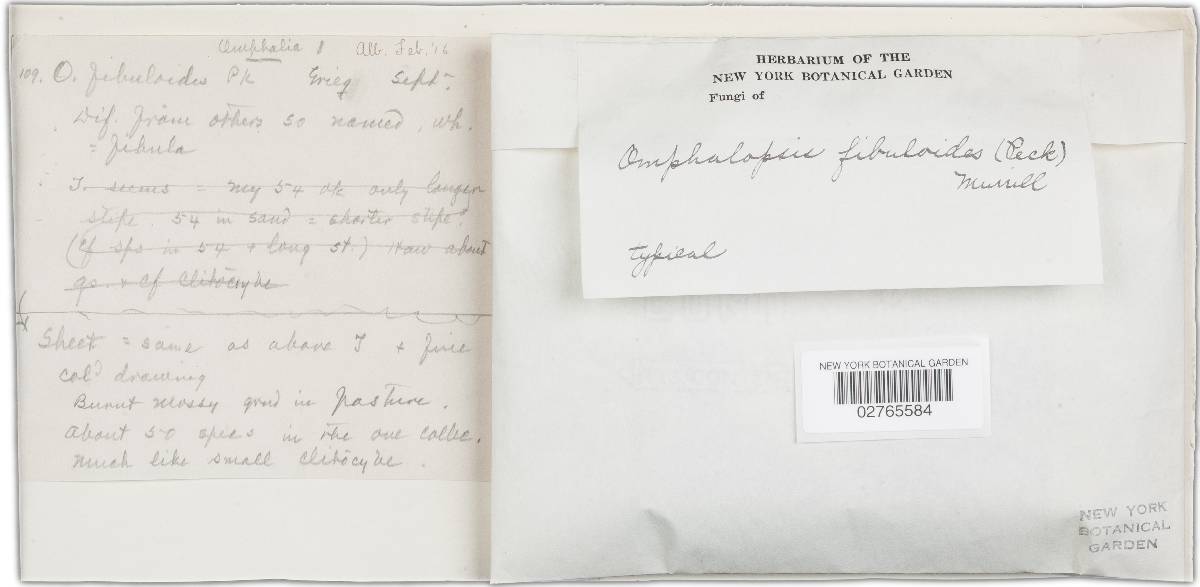 Omphalia 8 Alb. Feb. '16
109. O. fibuloides Pk Greig Sept.
Dif. from others so named, wh.
= fibula
T. seems = my 54 ok only longer
stipe. 54 in sand = shorter stipe?
(Cf sps in 54 + long st.) How about
gs. + Cf Clitocybe
Sheet = same as above T + fine
col'd drawing
Burnt mossy grnd in pasture.
About 50 specs in the one collec.
Much like small Clitocybe.
HERBARIUM OF THE
NEW YORK BOTANICAL GARDEN
Fungi of
Omphalopsis fibuloides (Peck)
Murrill
typical
NEW YORK BOTANICAL GARDEN
02765584
NEW YORK
BOTANICAL
GARDEN